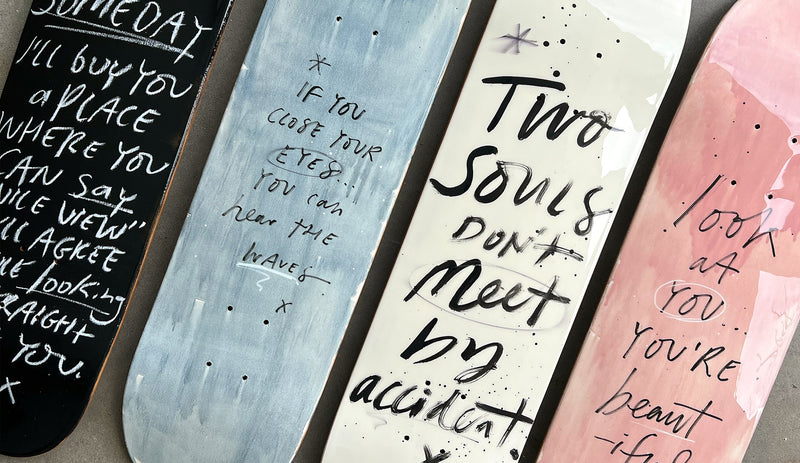 SOMEDAY
I'LL buy YOU
a PLACE
WHERE YOU
CAN say
NICE VIEW"
'LL AGREE
looking
RAIGHT
YOU.
x
*
IF YOU
CLOSE YOUR
EYES...
YOU can
hear THE
WAVES
x
*
Two
Souls
DON't
Meet
by
accident
x
look
at
YOU...
YOU'RE
beaut
-iful